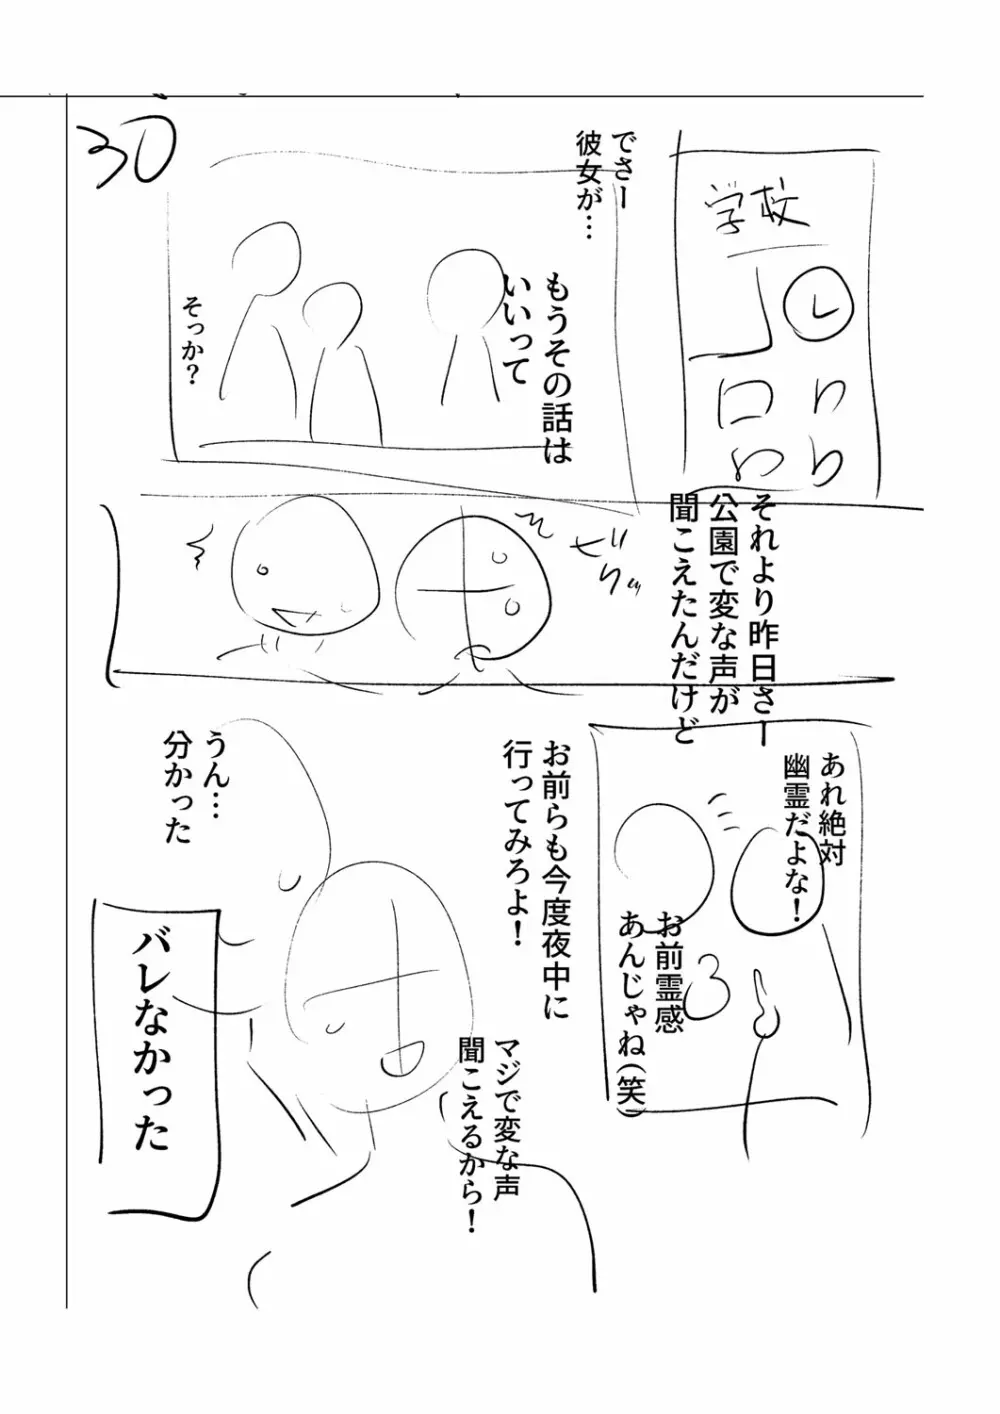 30
学校
でさー
彼女が…
もうその話は
いいって
そっか？
それより昨日さー
公園で変な声が
聞こえたんだけど
ビリ
あれ絶対
幽霊だよな！
お前霊感
あんじゃね(笑)
お前らも今度夜中に
行ってみろよ！
マジで変な声
聞こえるから！
うん…
分かった
バレなかった